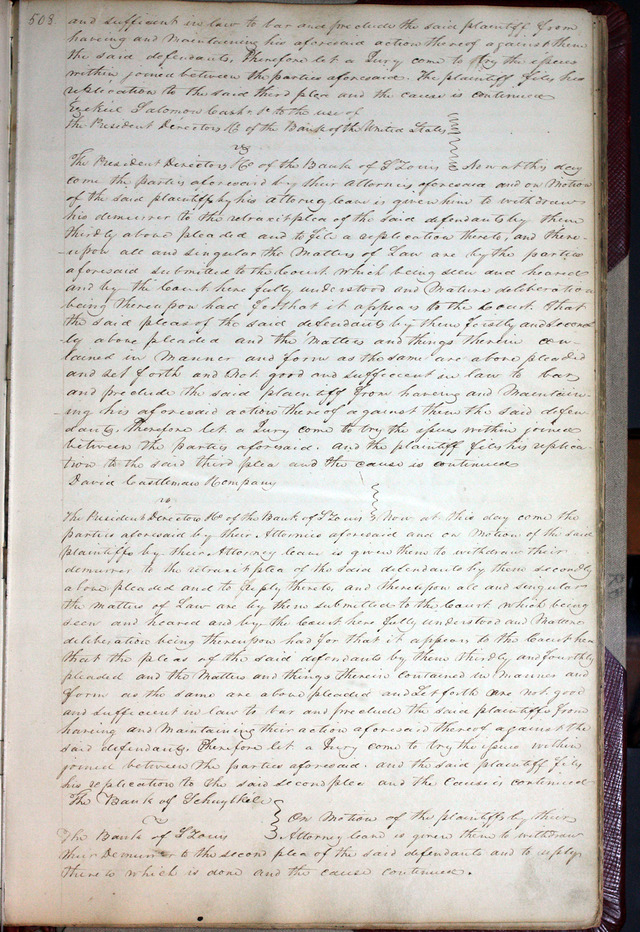 508
and sufficient in law to bar and preclude the said plaintiff from
having and maintaining his aforesaid action thereof against them
the said defendants, Therefore let a Jury come to try the issues
within joined between the parties aforesaid. The plaintiff files his
replication to the said third plea and the cause is continued
Ezekiel Salomon Cash.r to the use of
the President Directors &c of the Bank of the United States
vs
The President Directors &c of the Bank of St Louis Now at this day
come the parties aforesaid by their Attornies aforesaid and on Motion
of the said plaintiff by his Attorney leave is given him to withdraw
his demurrer to the retraxit plea of the said defendants by them
thirdly above pleaded and to file a replication thereto, and there-
upon all and singular the Matters of Law are by the parties
aforesaid submitted to the Court which being seen and heared
and by the Court here fully understood and Mature deliberation
being thereupon had for that it appears to the Court that
the said pleas of the said defendants by them firstly and second
ly above pleaded and the Matters and things therein con-
tained in Manner and form as the same are above pleaded
and set forth and Not good and sufficient in law to bar
and preclude the said plaintiff from having and Maintain-
ing his aforesaid action thereof against them the said defen
dants, Therefore let a Jury come to try the issues within joined
between the parties aforesaid. And the plaintiff files his replica-
tion to the said third plea and the cause is continued
David Castleman & Company
vs
The President Directors &c of the Bank of St Louis Now at this day come the
parties aforesaid by their Attornies aforesaid and on Motion of the said
plaintiffs by their Attorney leave is given them to withdraw their
demurrer to the retraxit plea of the said defendants by them secondly
above pleaded and to reply thereto, and thereupon all and singular
the Matters of Law are by them submitted to the Court which being
seen and heared and by the Court here fully understood and Mature
deliberation being thereupon had for that it appears to the Court here
that the pleas of the said defendants by them thirdly and fourthly
pleaded and the Matters and things therein contained in Manner and
form as the same are above pleaded and set forth are not good
and sufficient in law to bar and preclude the said plaintiffs from
having and Maintaining their action aforesaid thereof against the
said defendants, Therefore let a Jury come to try the issues within
joined between the parties aforesaid. And the said plaintiff files
his replication to the said second plea and the cause is continued
The Bank of Schuylkill
vs
On Motion of the plaintiffs by their
The Bank of St Louis Attorney leave is given them to withdraw
their Demurrer to the second plea of the said defendants and to reply
thereto which is done and the cause continued.